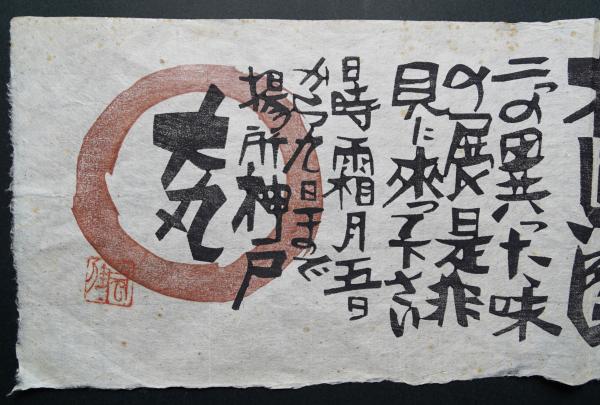 二つの異った味
の展是非
見に來って下さい
日時霜月五日
から九日まで
場所神戸
大丸